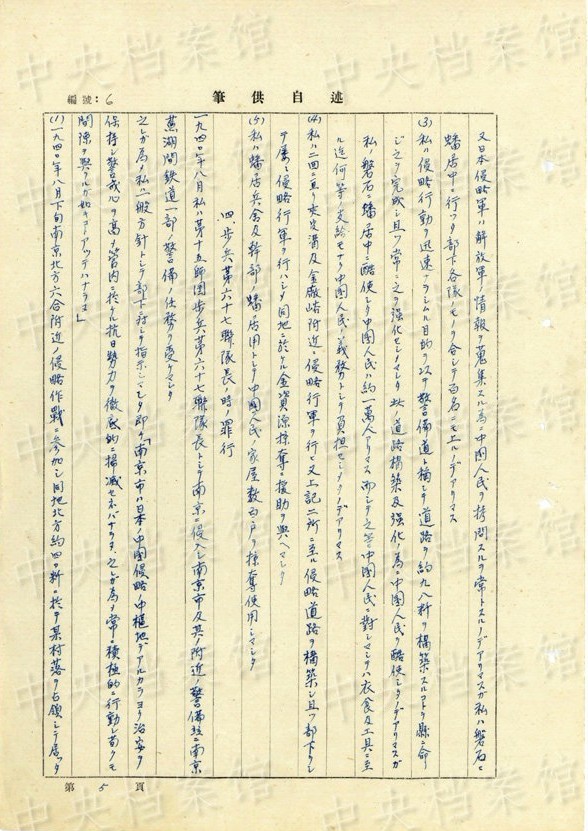 編號:6
筆供述自
又日本侵略軍ハ解放軍ノ情報ヲ蒐集スル為ニ中国人民ヲ拷問スルヲ常トスルノデアリマスガ私ハ磐石ニ
蟠居中ニ行ッタ部下各隊ノモノヲ合シテ百名ニモ上ルノデアリマス
(3)私ハ侵略行動ヲ迅速ナラシムル目的ヲ以テ警備道ト稱シテ道路ヲ約九八粁ヲ構築スルコトヲ縣ニ命
ジ之ヲ完成シ且ツ常ニ之ヲ強化セシメマシタ 此ノ道路構築及強化ノ為ニ中国人民ヲ酷使シタノデアリマスガ
私ノ磐石ニ蟠居中ニ酷使シタ中国人民ハ約一萬人アリマス 而シテ之等中国人民ニ對シマシテハ衣食及工具ニ至
ル迄何等ノ支給モナク中国人民ノ義務トシテ負担セシメタノデアリマス
(4)私ハ二回ニ亘リ夾皮溝及金廠峪附近ニ侵略行軍ヲ行ヒ又上記二所ニ至ル侵略道路ヲ構築シ且ツ部下ヲシ
テ屡々侵略行軍ヲ行ハシメ同地ニ於ケル金資源掠奪ニ援助ヲ與ヘマシタ
(5)私ハ蟠居兵舍及幹部ノ蟠居用トシテ中国人民ノ家屋数百戸ヲ掠奪使用シマシタ
四、歩兵第六十七聯隊長ノ時ノ罪行
一九四〇年八月私ハ第十五師団歩兵第六十七聯隊長トシテ南京ニ侵入シ南京市及其ノ附近ノ警備並ニ南京
蕪湖間鉄道一部ノ警備ノ任務ヲ受ケマシタ
之レガ為ノ私ハ一般方針トシテ部下ニ対シテ指示シマシタ即チ「南京市ハ日本ノ中国侵略ノ中枢地デアルカラヨリ治安ヲ
保持シ警戒心ヲ高メ管内ニ於ケル抗日勢力ヲ徹底的ニ掃滅セネバナラヌ、之レガ為メ常ニ積極的ニ行動シ苟クモ
間隙ヲ與ヘルガ如キコトアッテハナラヌ」
(1)一九四〇年八月下旬南京北方六合附近ノ侵略作戰ニ参加シ同地北方約四〇粁ニ於テ某村落ヲ占領シテ居ッタ
第5頁
中央档案馆